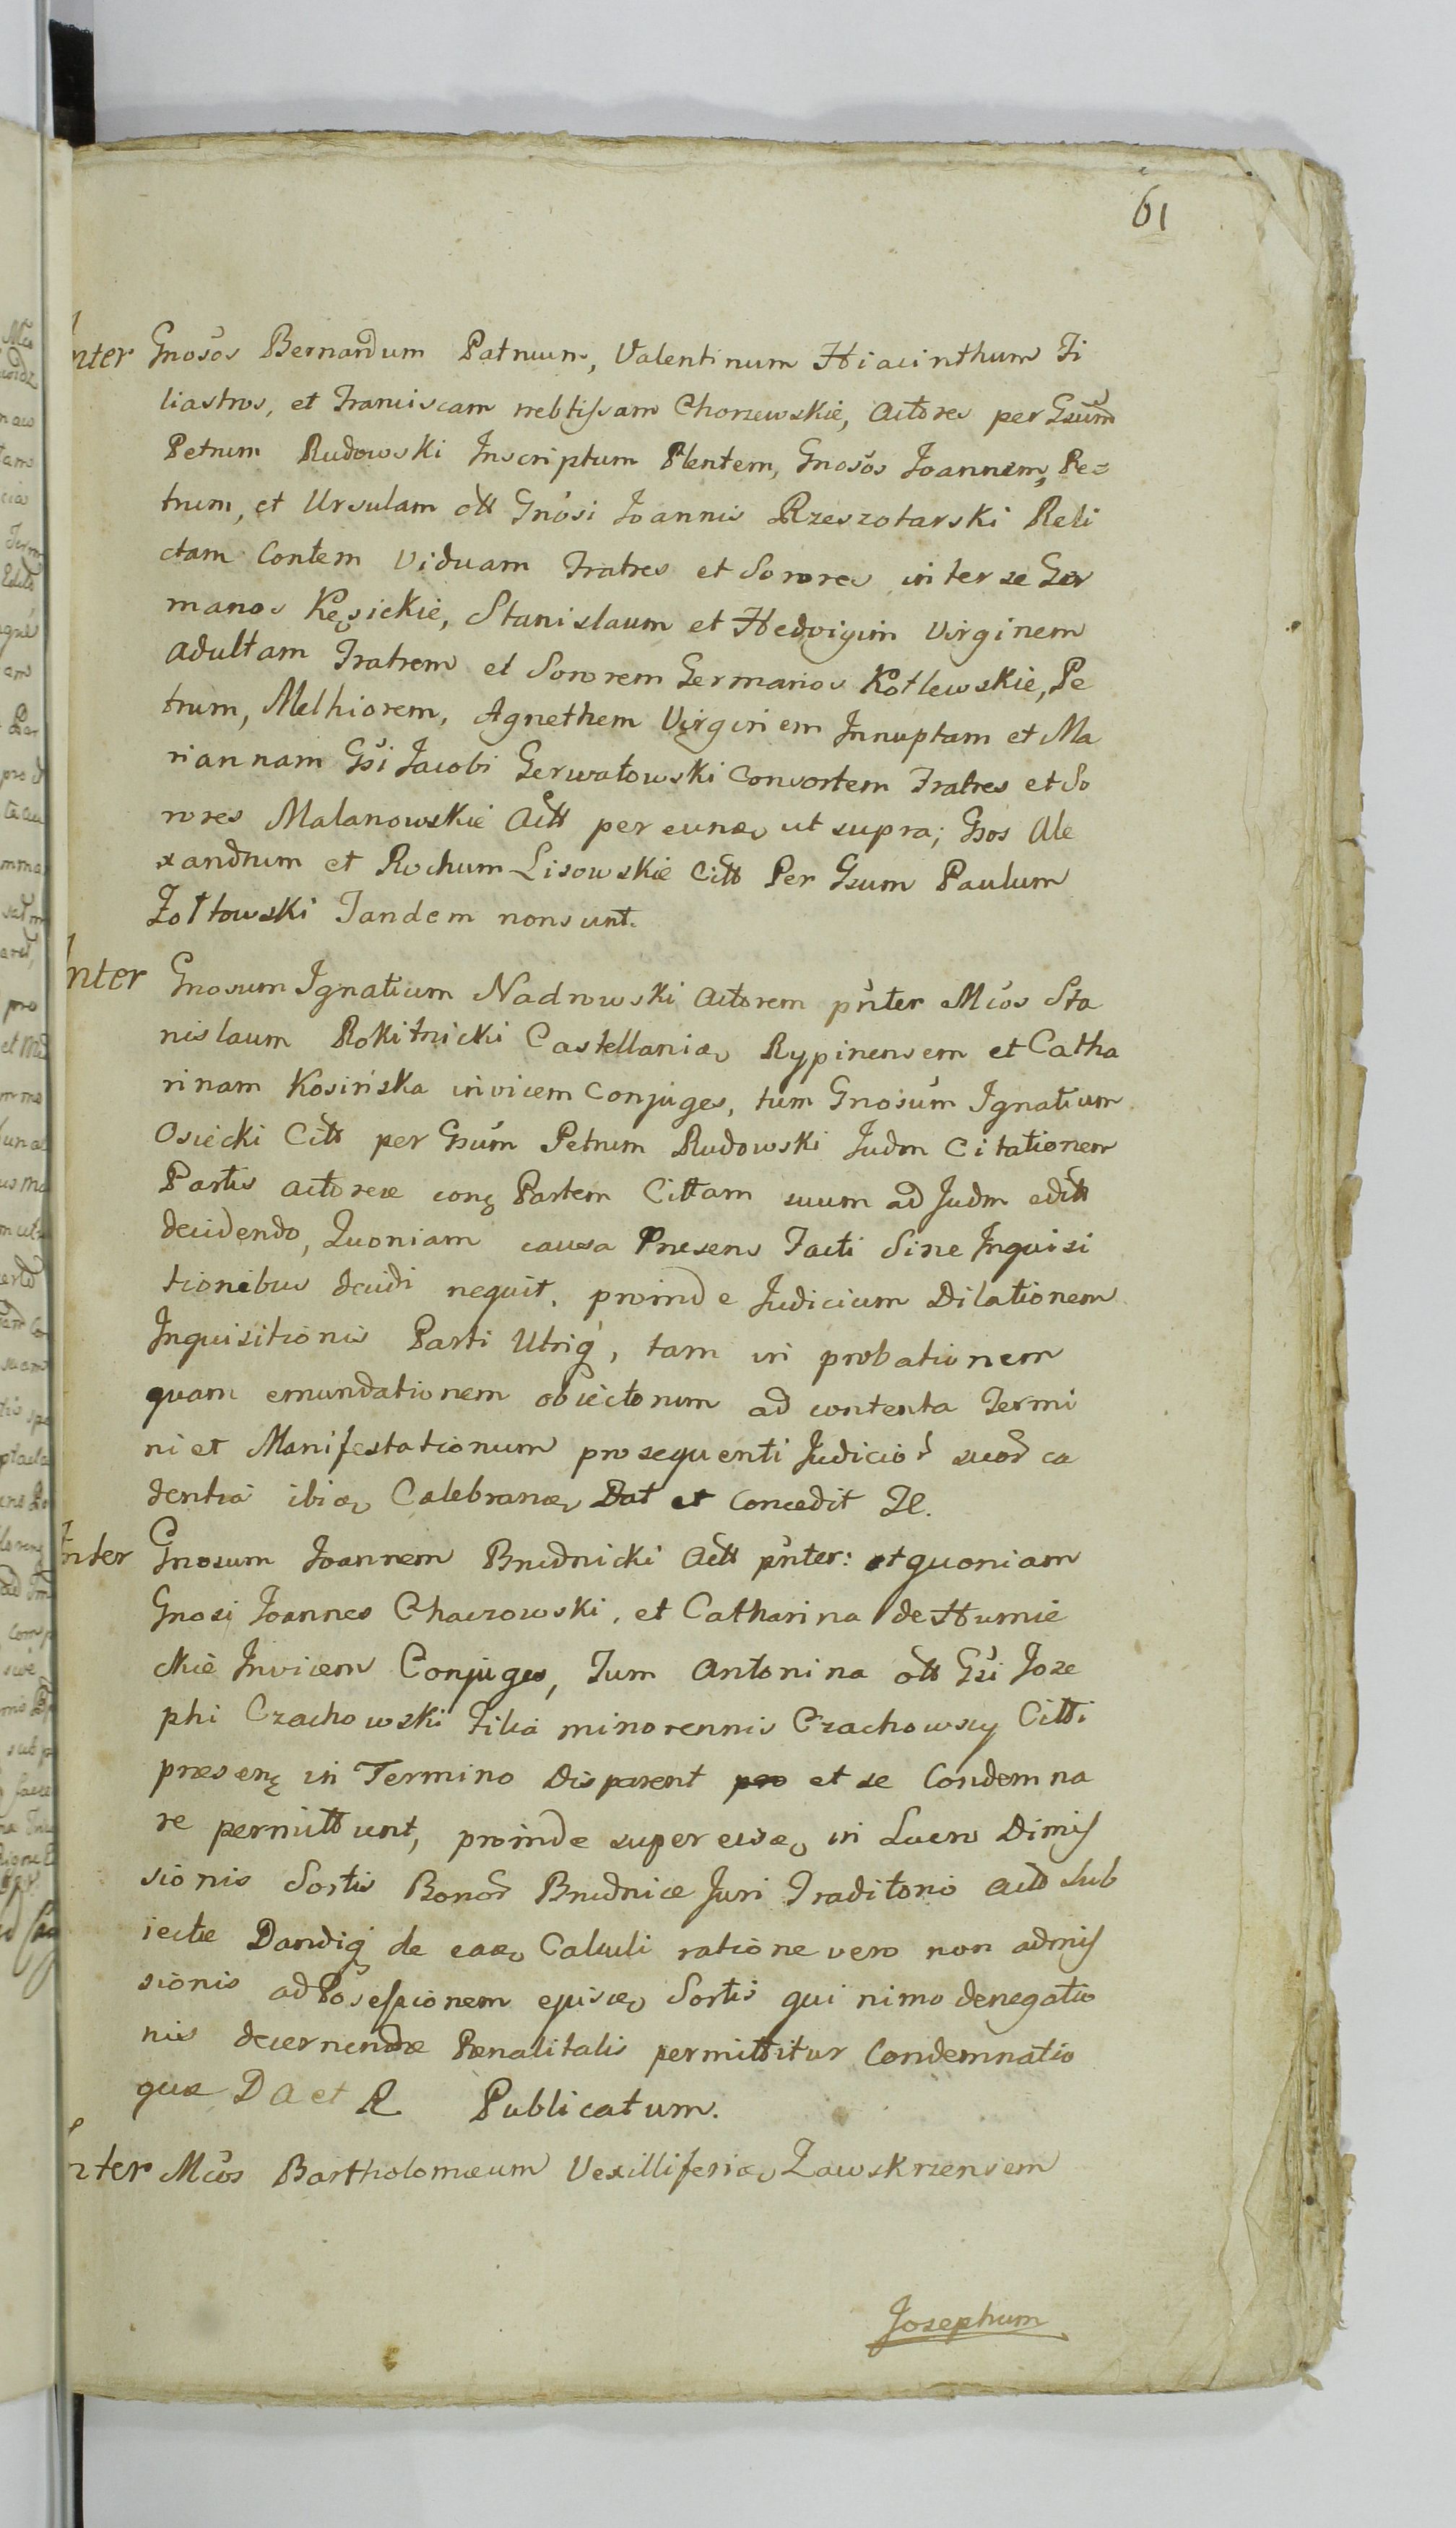 61
Inter Gnosos Bernardum Patruum, Valentinum Hiacinthum Fi
liastros, et Franciscam nebtissam Chorzewskie, Actores per Gsum
Petrum Rudowski Inscriptum Plentem, Gnosos Joannem, Pe=
trum, et Ursulam ott Gnosi Joannis Rzeszotarski Reli
ctam Contem Viduam Fratres et Sorores inter se Ger
manos Kęsickie, Stanislaum et Hedvigim Virginem
adultam Fratrem et Sororem Germanos Kotlewskie, Pe
trum, Melhiorem, Agnethem Virginem Innuptam et Ma
riannam Gsi Jacobi Gerwatowski Consortem Fratres et So
rores Malanowskie Actt per eunæ ut supra; Gsos Ale
xandrum et Rochum Lisowskie Citt Per Gsum Paulum
Żołtowski Tandem non sunt.
Inter Gnosum Ignatium Nadrowski Actorem pnter Mcos Sta
nislaum Rokitnicki Castellaniæ Rypinensem et Catha
rinam Kosińska invicem Conjuges, tum Gnosum Ignatium
Osiecki Citt per Gsum Petrum Rudowski Judm Citationem
Partis actoreæ conq Partem Cittam suum ad Judm editt
decidendo, Quoniam causa Præsens Facti Sine Inquisi
tionibus decidi nequit, proinde Judicium Dilationem
Inquisitionis Parti Utriq, tam in probationem
quam emundationem obiectorum ad contenta Termi
ni et Manifestationum pro sequenti Judicior suor ca
dentia ibiæ Celebranæ Dat et Concedit
Inter Gnosum Joannem Brudnicki Actt pnter: et quoniam
Gnosi Joannes Chaczowski, et Catharina de Humie
ckie Invicem Conjuges, Tum Antonina ott Gsi Jose
phi Czachowski Filia minorennis Czachowscy Citti
præsenq in Termino Disparent et se Condemna
re permittunt, proinde super eisæ in Lucro Dimis
sionis Sortis Bonor Brudnice Juri Traditorio Acto Sub
iectæ Dandiq de eaæ Calculi ratione vero non admis
sionis ad Possessionem ejusæ Sortis qui nimo denegatio
nis decernendæ Pænalitatis permittitur Condemnatio
quæ D A et R Publicatum.
Inter Mcos Bartholomæum Vexilliferiæ Zawskrzensem
Josephum